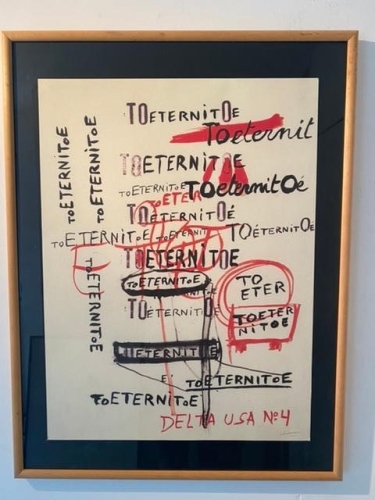 TOETERNITOE
TOeternit
TOETERNITOE
TOETERNITOE
TOeternitOé
TOETER
TOéTERNITOé
TOETERNITOE
TOETERNITOE
TOÉTERNITOÉ
TOETERNITOE
TOETERNITOE
TO
ETER
TOETERNITOE
TOETER
NITOE
TOETERNITOE
TOETERNITOE
TOETERNITOE
DELTA USA No4
TOETERNITOE
TOETERNITOE
TOETERNITOE